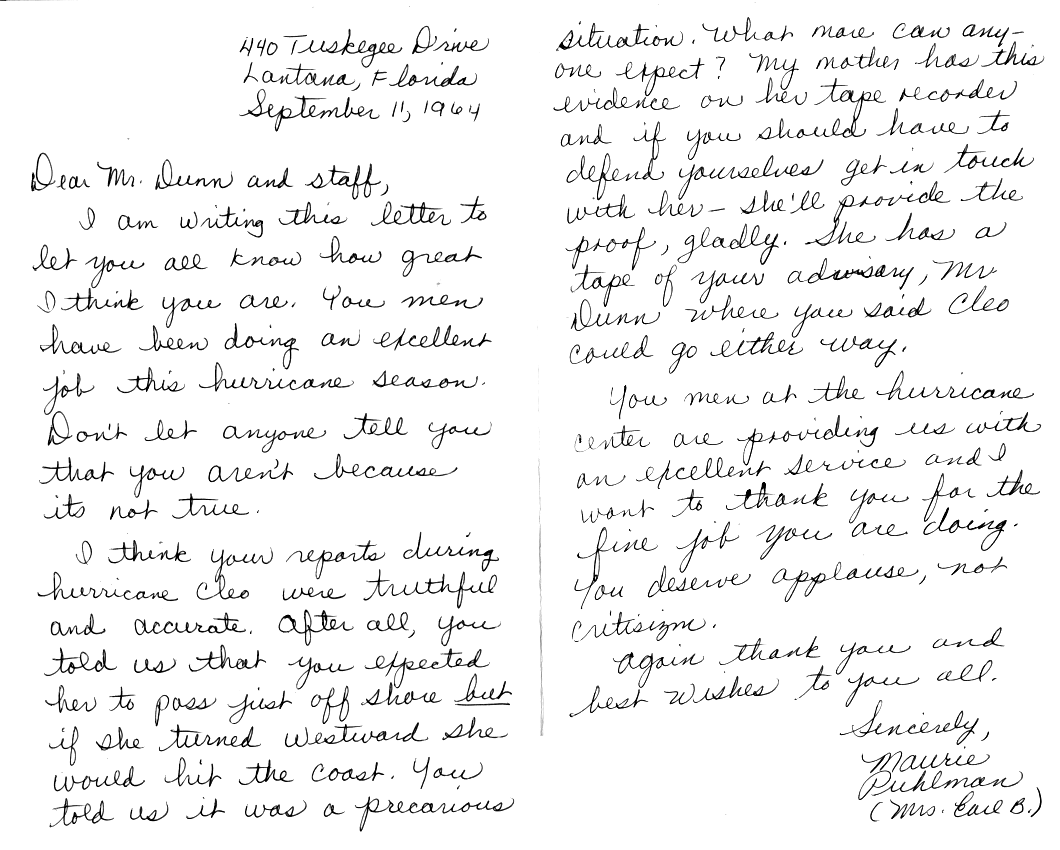 440 Tuskegee Drive
Lantana, Florida
September 11, 1964
Dear Mr. Dunn and staff,
I am writing this letter to
let you all know how great
I think you are. You men
have been doing an excellent
job this hurricane season.
Don't let anyone tell you
that you aren't because
its not true.
I think your reports during
hurricane Cleo were truthful
and accurate. After all, you
told us that you expected
her to pass just off shore but
if she turned westward she
would hit the coast. You
told us it was a precarious
situation. What more can any-
one expect? My mother has this
evidence on her tape recorder
and if you should have to
defend yourselves get in touch
with her – she'll provide the
proof, gladly. She has a
tape of your advisary, Mr
Dunn where you said Cleo
could go either way.
You men at the hurricane
center are providing us with
an excellent service and I
want to thank you for the
fine job you are doing.
You deserve applause, not
critisizm.
Again thank you and
best wishes to you all.
Sincerely,
Maurie
Puhlman
(Mrs. Earl B.)